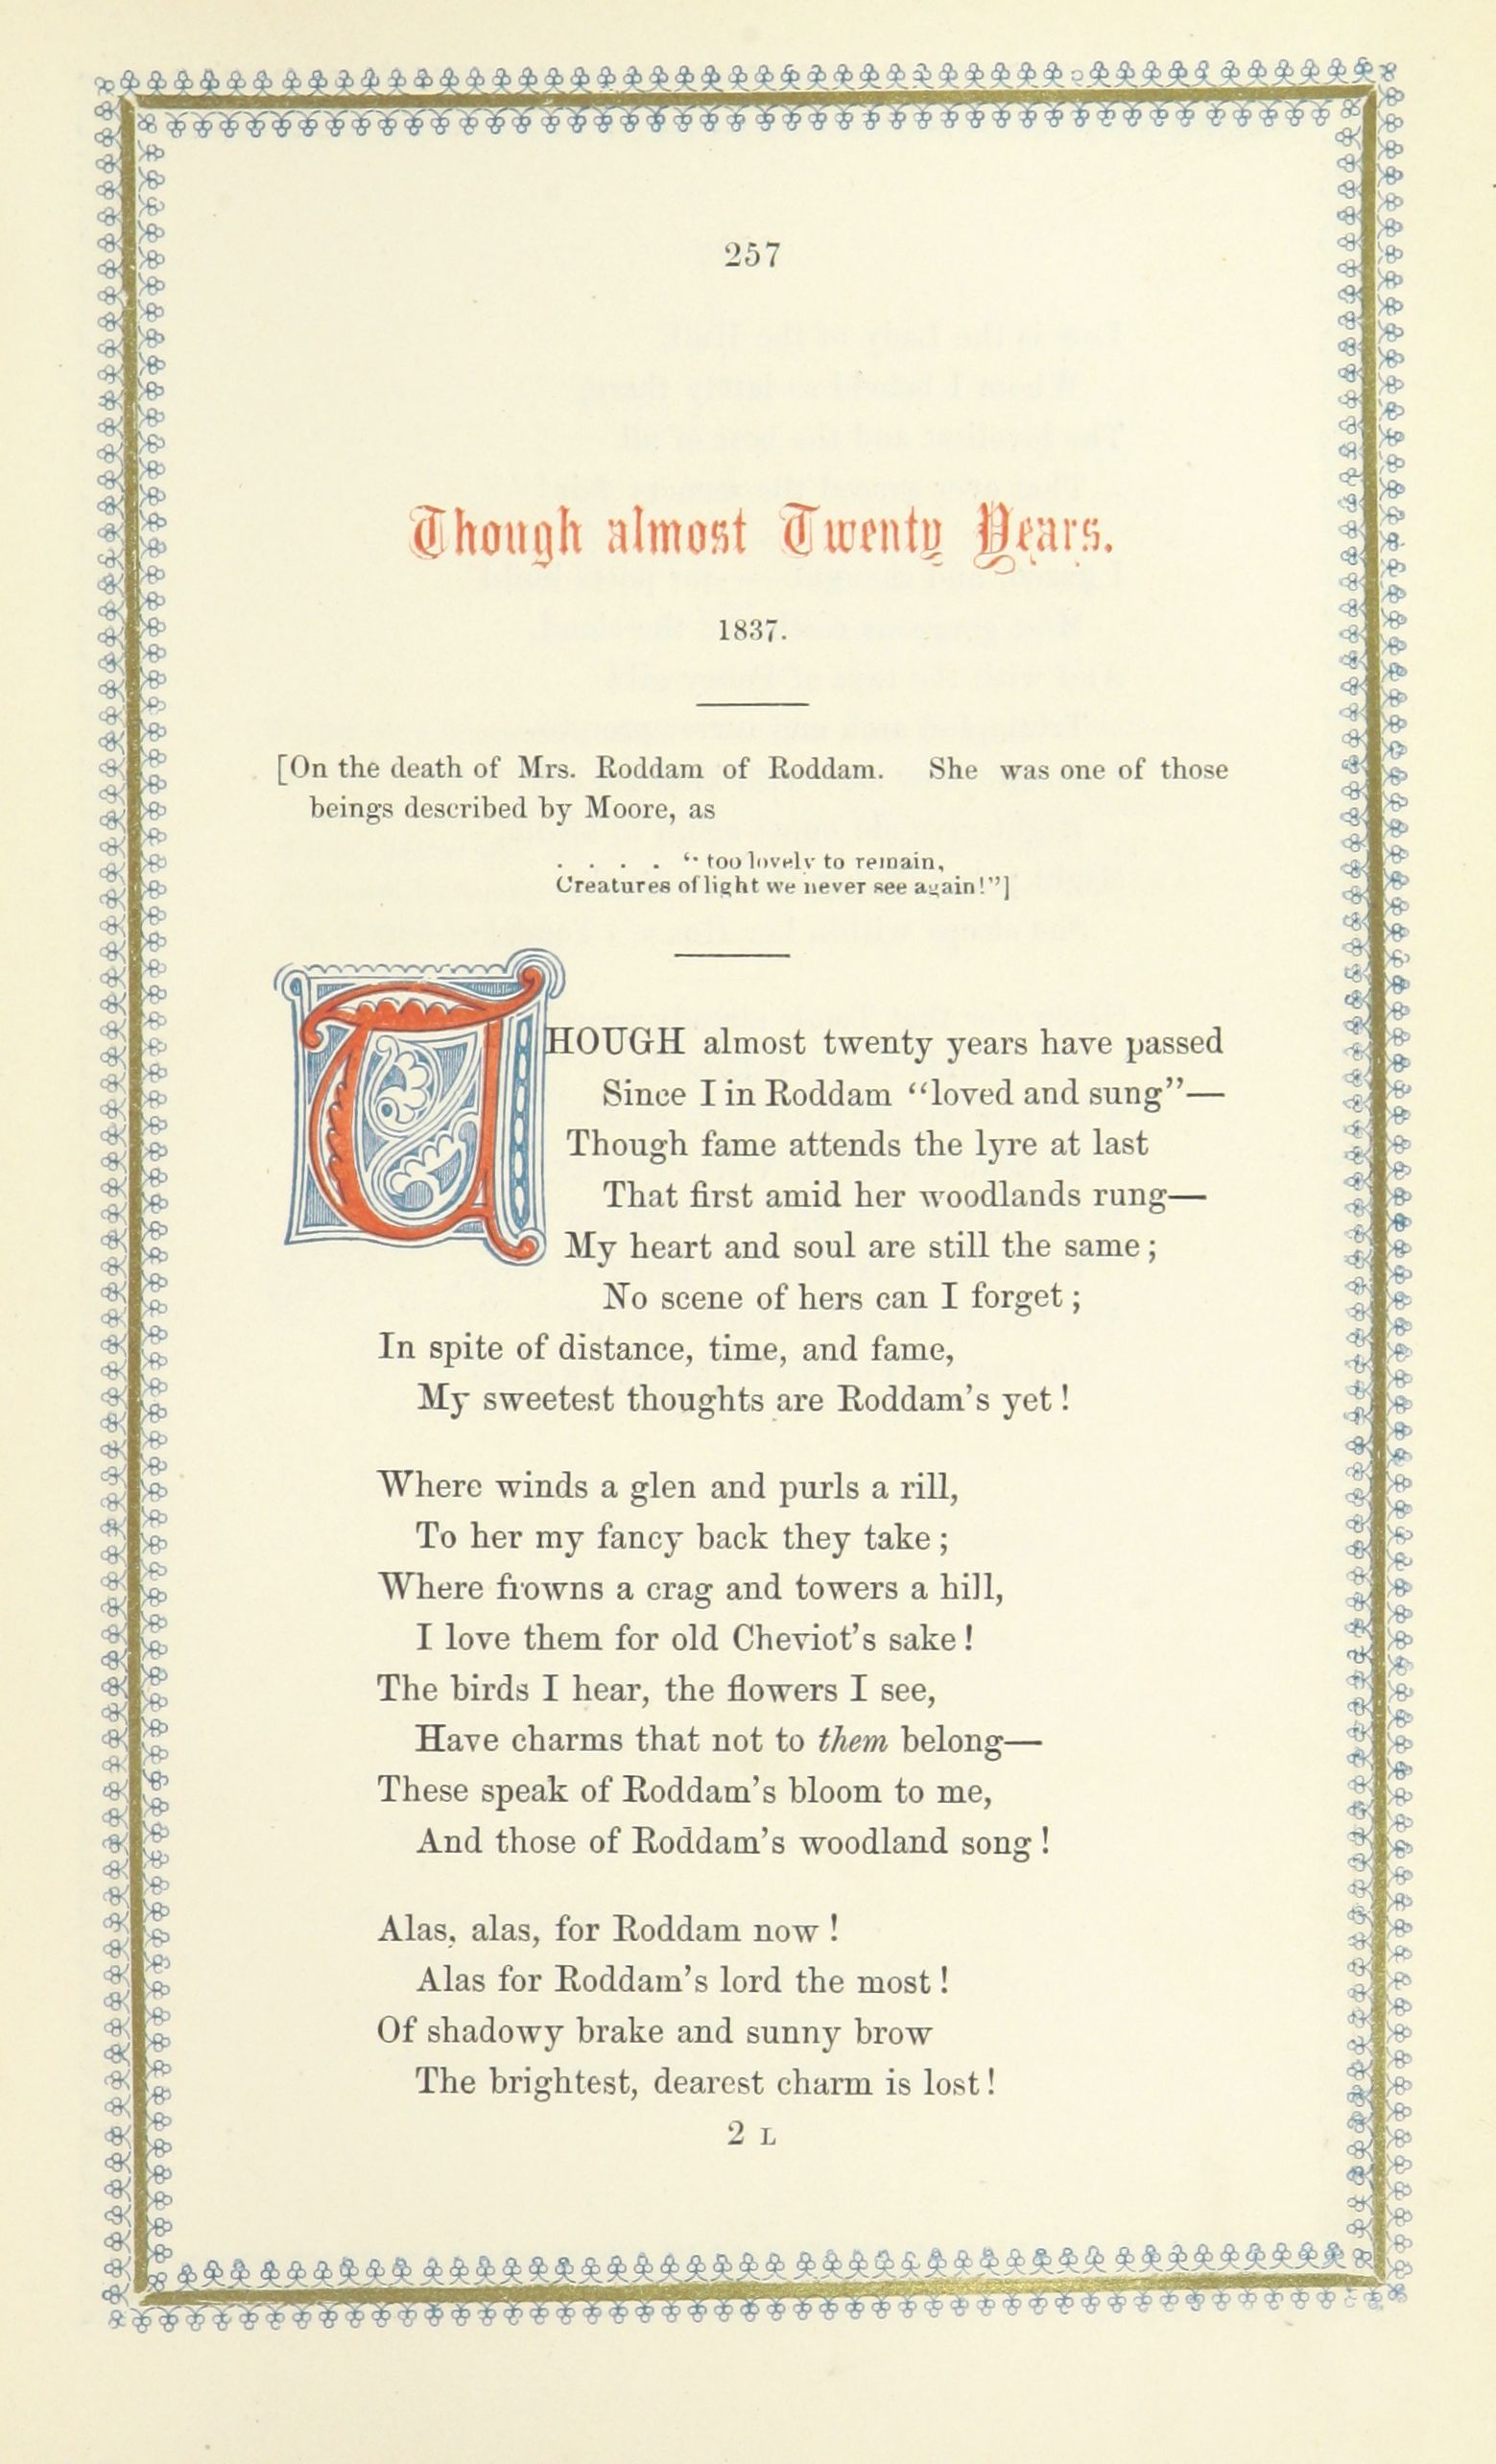 257
Though almost Twenty Years.
1837.
[On the death of Mrs. Roddam of Roddam. She was one of those
beings described by Moore, as
. . . . “too lovely to remain,
Creatures of light we never see again!”]
THOUGH almost twenty years have passed
Since I in Roddam “loved and sung”—
Though fame attends the lyre at last
That first amid her woodlands rung—
My heart and soul are still the same;
No scene of hers can I forget;
In spite of distance, time, and fame,
My sweetest thoughts are Roddam’s yet!
Where winds a glen and purls a rill,
To her my fancy back they take;
Where frowns a crag and towers a hill,
I love them for old Cheviot’s sake!
The birds I hear, the flowers I see,
Have charms that not to them belong—
These speak of Roddam’s bloom to me,
And those of Roddam’s woodland song!
Alas, alas, for Roddam now!
Alas for Roddam’s lord the most!
Of shadowy brake and sunny brow
The brightest, dearest charm is lost!
2 L